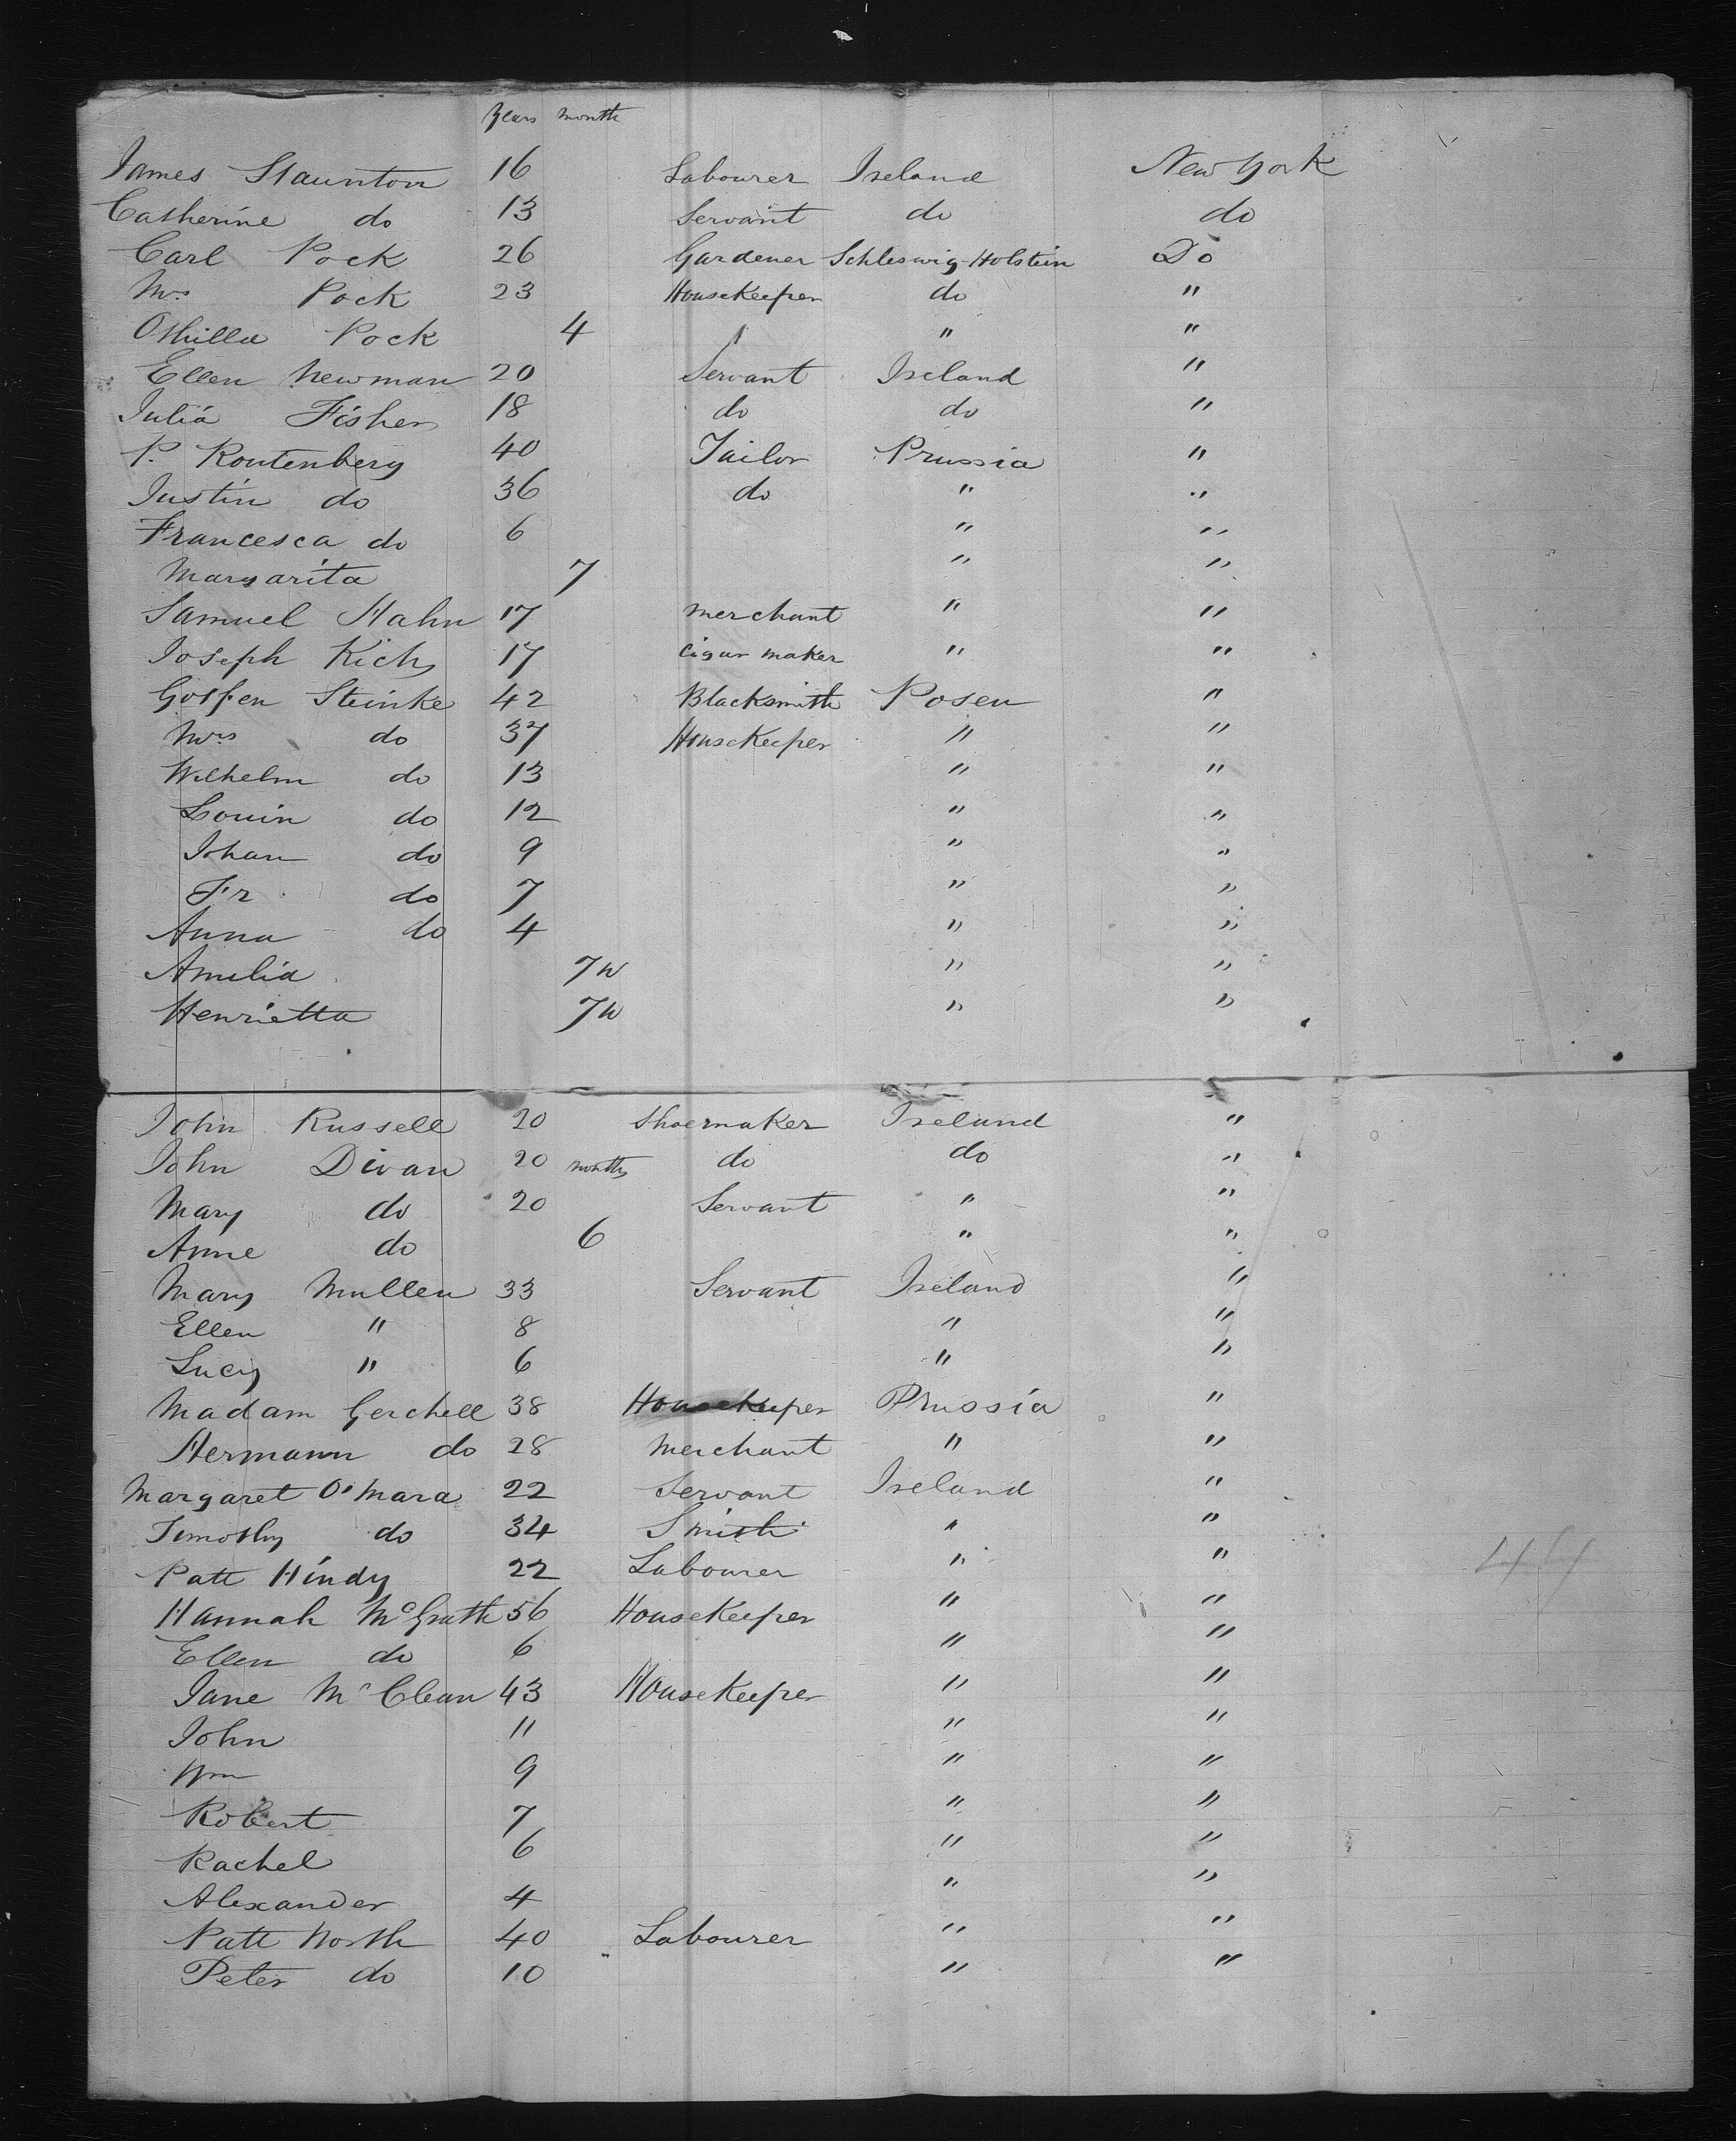 Years month
James Staunton 16 Labourer Ireland New York
Catherine do 13 Servant do do
Carl Pock 26 Gardener Schleswig-Holstein Do
Mrs Pock 23 Housekeeper do "
Othilla Pock 4 " "
Ellen Newman 20 Servant Ireland "
Julia Fisher 18 do do "
P. Routenberg 40 Tailor Prussia "
Justin do 36 do " "
Francesca do 6 " "
Margarita 7 " "
Samuel Hahn 17 Merchant " "
Joseph Kich 17 Cigar maker " "
Steinke 42 Blacksmith Posen "
Mrs do 37 Housekeeper " "
Wilhelm do 13 " "
Louin do 12 " "
Johan do 9 " "
Fr do 7 " "
Anna do 4 " "
Amelia 7W " "
Henrietta 7W " "
John Russell 20 Shoemaker Ireland "
John Divan 20 months do do "
Mary do 20 Servant " "
Anne do 6 " "
Mary Mullen 33 Servant Ireland "
Ellen " 8 " "
Lucy " 6 " "
Madam Gerchell 38 Housekeeper Prussia "
Hermann do 28 Merchant " "
Margaret O'Mara 22 Servant Ireland "
Timothy do 34 Smith " "
Patt Hindy 22 Labourer " "
Hannah McGrath 56 Housekeeper " "
Ellen do 6 " "
Jane McClean 43 Housekeeper " "
John 11 " "
Wm 9 " "
Robert 7 " "
Rachel 6 " "
Alexander 4 " "
Patt North 40 Labourer " "
Peter do 10 " "